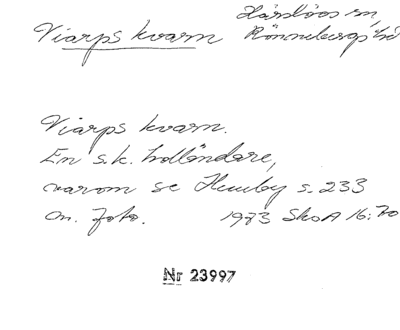 Härslövs sn,
Viarps kvarn Rönnebergs hd
Viarps kvarn.
En s.k. holländare,
varom se Humby s. 233
m. foto. 1973 SkoA 16:70
Nr 23997